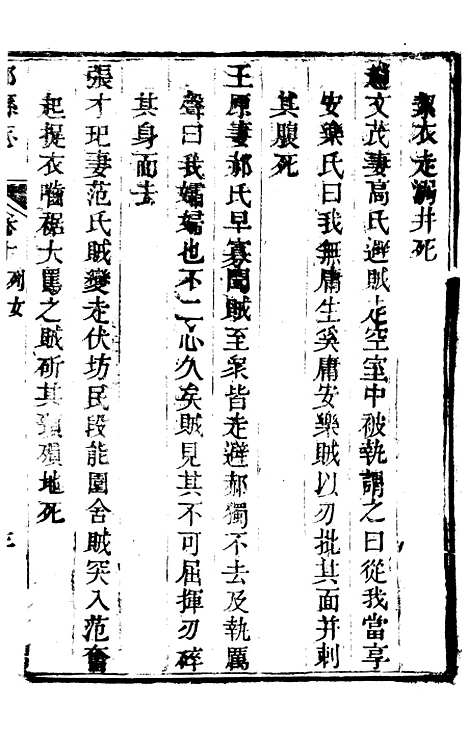 衣走溺井死
趙文茂妻高氏避賊走空室中被執謂之曰從我當享
安樂氏曰我無庸生奚庸安樂賊以刃批其面并刺
其腹死
王原妻郝氏早寡聞賊至衆皆走避郝獨不去及執厲
聲曰我孀婦也不二心久矣賊見其不可屈揮刃碎
其身而去
張才𤣱妻范氏賊變走伏坊民段能園舍賊突入范奮
起捉衣嚙裾大罵之賊斫其頸殞地死
縣志 卷十 列女